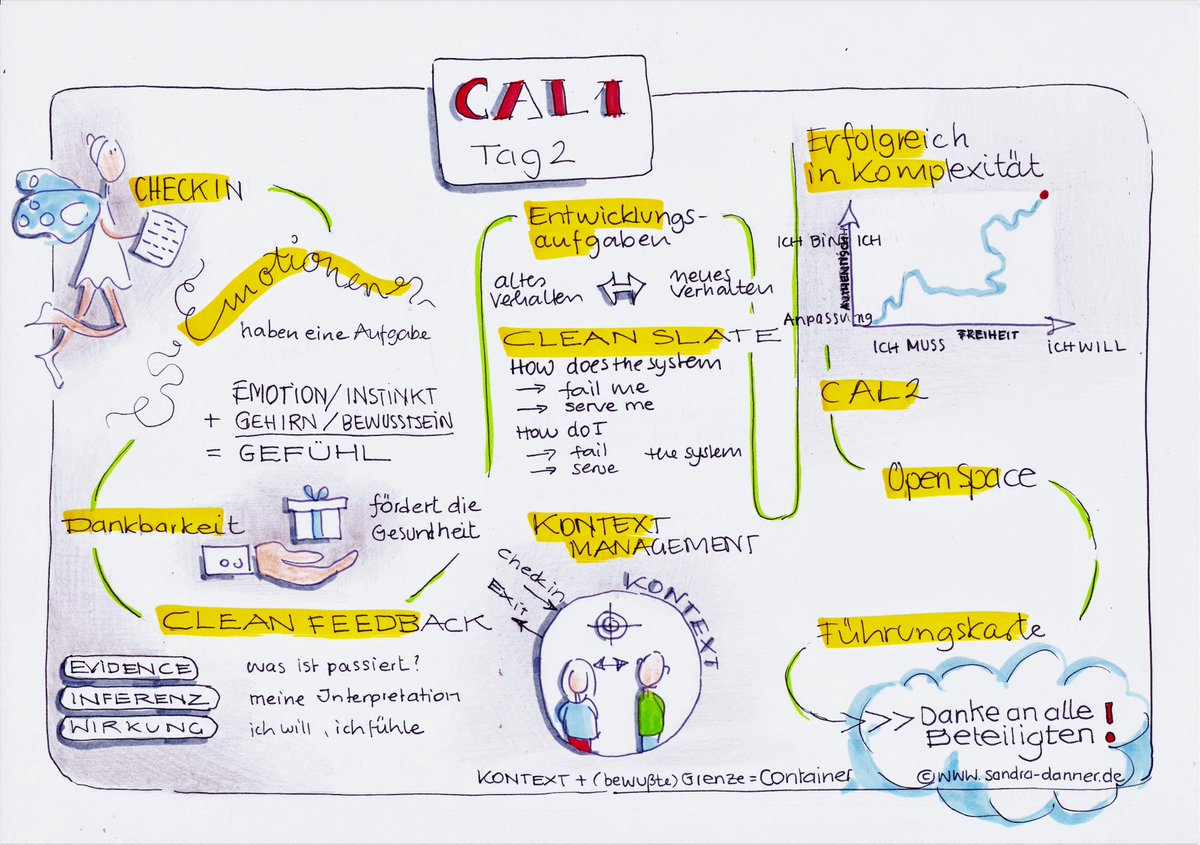 CAL1
Tag 2
CHECKIN
Emotionen
haben eine Aufgabe
EMOTION/INSTINKT
+ GEHIRN/BEWUSSTSEIN
= GEFÜHL
Dankbarkeit
fördert die
Gesundheit
CLEAN FEEDBACK
EVIDENCE was ist passiert?
INFERENZ meine Interpretation
WIRKUNG ich will, ich fühle
Entwicklungs-
aufgaben
altes
Verhalten
neues
Verhalten
CLEAN SLATE
How does the system
→ fail me
→ serve me
How do I
→ fail the system
→ serve
KONTEXT
MANAGEMENT
Check in
EXIT
KONTEXT
KONTEXT + (bewußte) Grenze = Container
Erfolgreich
in Komplexität
ICH BIN ICH
AUTHENTISCH
Anpassung
ICH MUSS
FREIHEIT
ICH WILL
CAL2
Open Space
Führungskarte
>>> Danke an alle
Beteiligten!
©www.sandra-danner.de